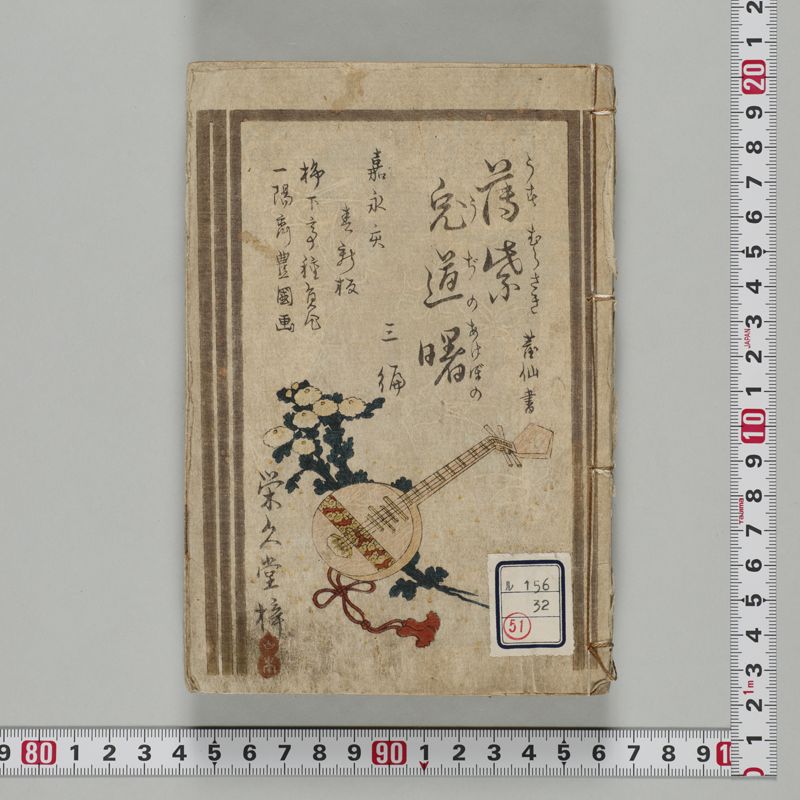 うすむらさき
薄紫
宇治曙
うぢのあけぼの
菴仙書
三編
嘉永亥
春新板
柳下亭種員作
一陽齋豊國画
栄久堂梓
ル 156
32
51
2
20
9
8
7
6
5
4
3
2
1
10
9
8
7
6
5
4
3
2
1m
JAPAN
Tajima
9
80
1
2
3
4
5
6
7
8
9
90
1
2
3
4
5
6
7
8
9